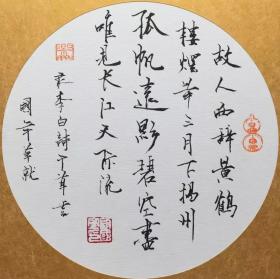 故人西辞黄鹤
楼烟华三月下扬州
孤帆远影碧空尽
唯见长江天际流
录李白诗
国华草就